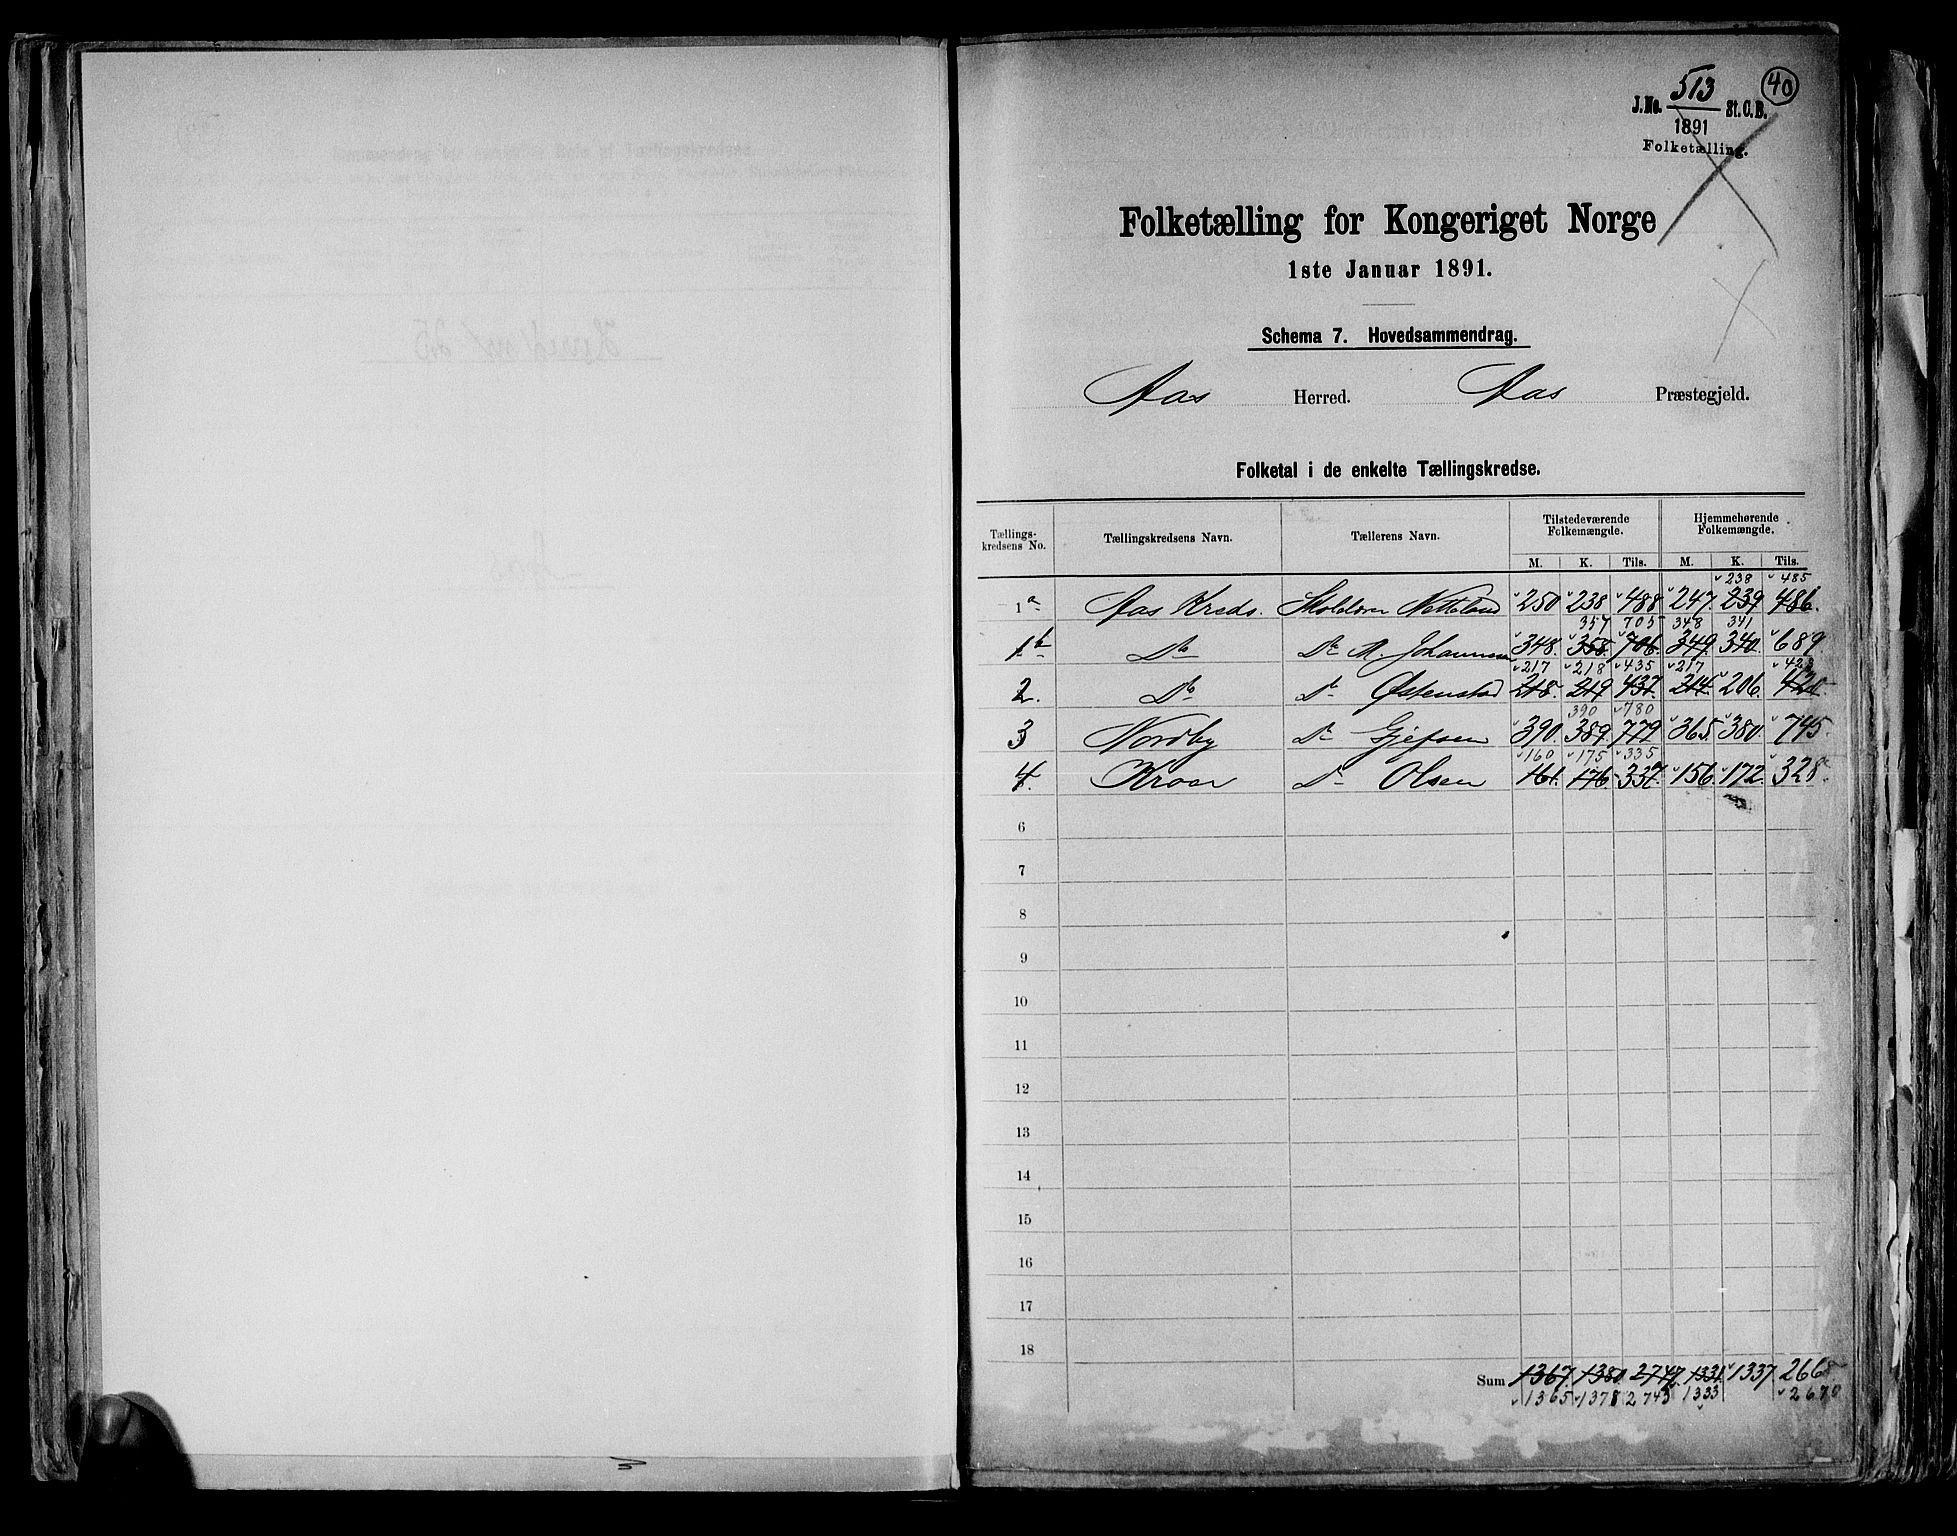 40
J.No. 513 St.C.B.
1891
Folketælling.
Folketælling for Kongeriget Norge
1ste Januar 1891.
Schema 7. Hovedsammendrag.
Aas Herred. Aas Præstegjeld.
Folketal i de enkelte Tællingskredse.
Tællings-kredsens No. Tællingskredsens Navn. Tællerens Navn. Tilstedeværende Folkemængde. Hjemmehørende Folkemængde.
M. K. Tils. M. K. Tils.
238 485
1a Aas Kreds. 250 238 488 247 239 486.
357 705 348 341
1b Do Do A. Johannesen 348. 358. 706. 349. 340. 689
217 218 435 217 423
2. Do Do Østenstad 218. 219 437. 214. 206. 420
390 780
3 Nordby Do Gjefsen 390. 389. 779 365. 380. 745.
160 175 335
4. Kroer Do Olsen 161. 176. 337. 156. 172. 328.
6
7
8
9
10
11
12
13
14
15
16
17
18
Sum 1367. 1380. 2747. 1331. 1337. 2668
1365 1378 2743 1333 2670